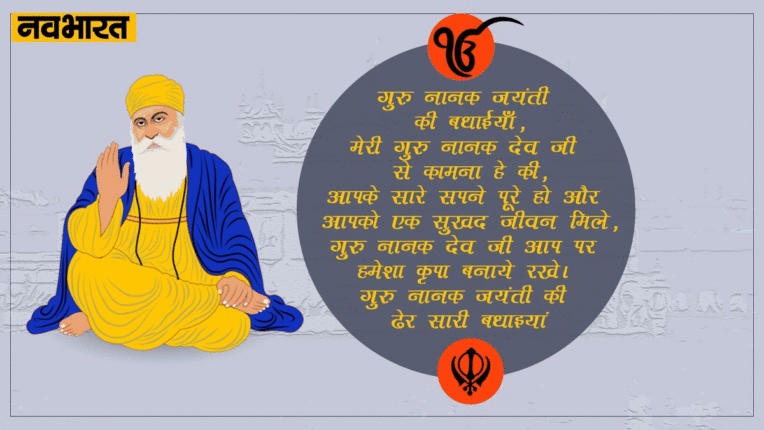 नवभारत
ੴ
गुरु नानक जयंती
की बधाईयाँ,
मेरी गुरु नानक देव जी
से कामना हे की,
आपके सारे सपने पूरे हो और
आपको एक सुखद जीवन मिले,
गुरु नानक देव जी आप पर
हमेशा कृपा बनाये रखे।
गुरु नानक जयंती की
ढेर सारी बधाइयां